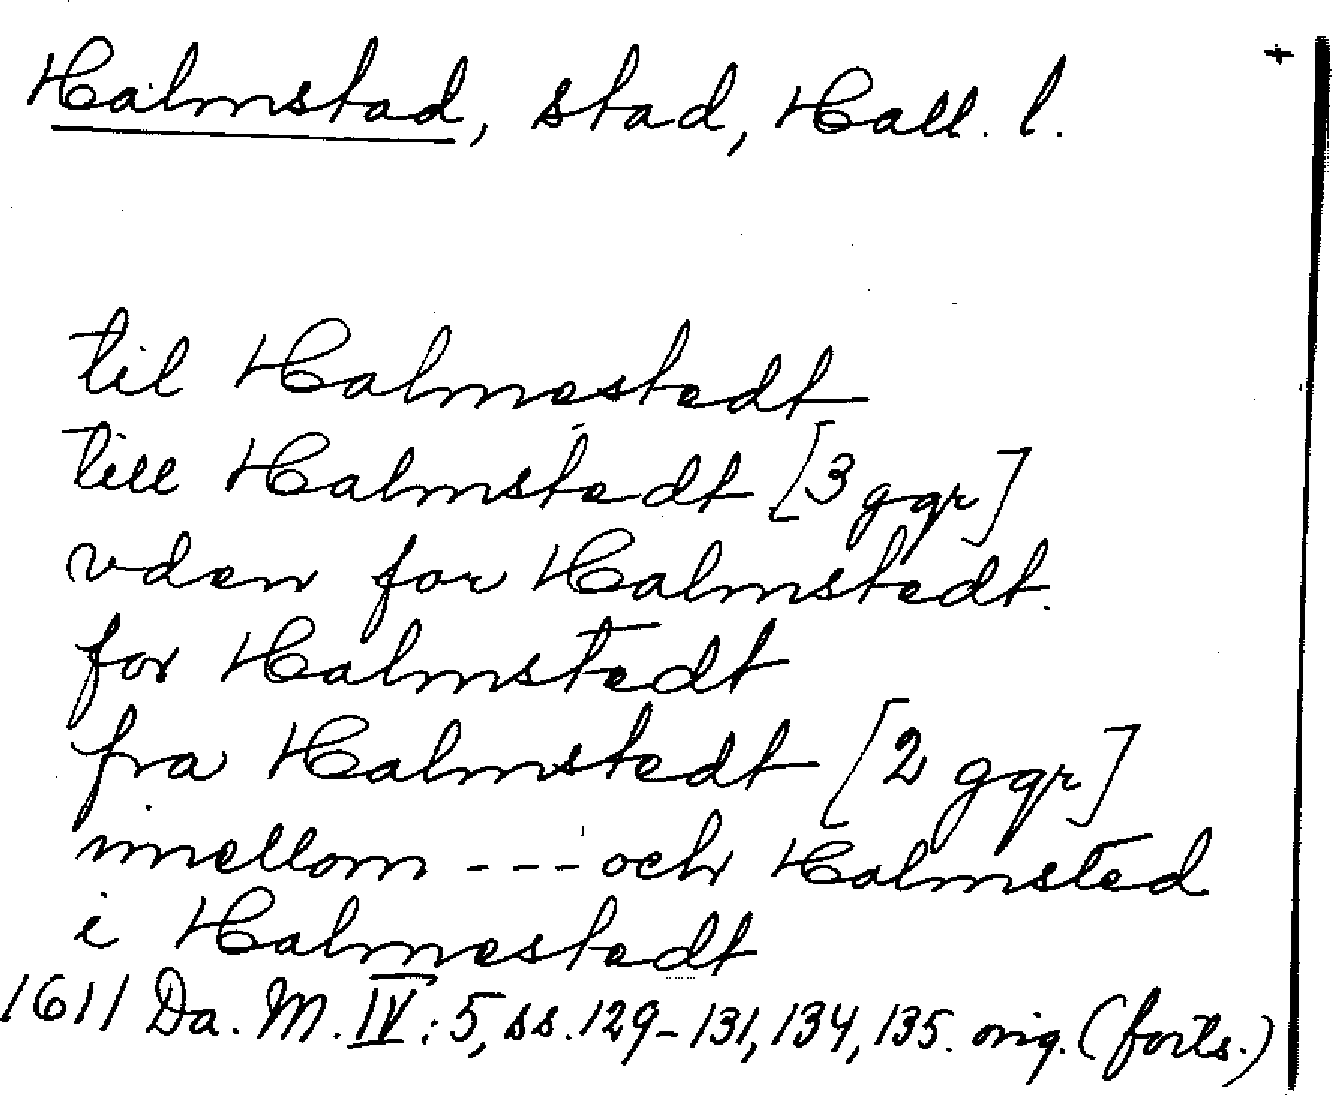 Halmstad, stad, Hall. l. +
til Halmestedt
till Halmstedt [3 ggr]
vden for Halmstedt.
for Halmstedt
fra Halmstedt [2 ggr]
imellom --- och Halmsted
i Halmestedt
1611 Da. M. IV: 5, ss. 129-131, 134, 135. orig. (forts.)